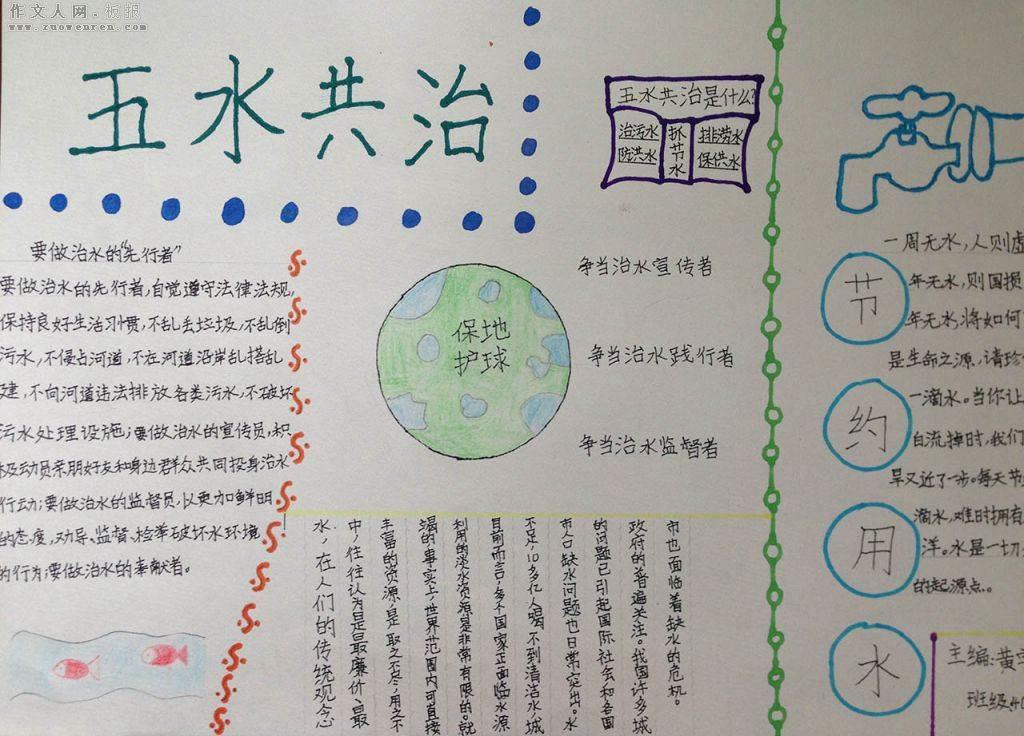 作文人网.板报
www.zuowenren.com
五水共治
五水共治是什么?
治污水
防洪水
抓节水
排涝水
保供水
要做治水的“先行者”
要做治水的先行者,自觉遵守法律法规,
保持良好生活习惯,不乱丢垃圾,不乱倒
污水,不侵占河道,不在河道沿岸乱搭乱
建,不向河道违法排放各类污水,不破坏
污水处理设施;要做治水的宣传员,积
极动员亲朋好友和身边群众共同投身治水
行动;要做治水的监督员,以更加鲜明
的态度,劝导、监督、检举破坏水环境
的行为;要做治水的奉献者。
保地
护球
争当治水宣传者
争当治水践行者
争当治水监督者
水,在人们的传统观念
中,往往认为是最廉价、最
丰富的资源,是取之不尽,用之不
竭的事实上,世界范围内可直接
利用的淡水资源是非常有限的。就
目前而言,多个国家正面临水源
不足,10多亿人喝不到清洁水,城
市人口缺水问题也日常突出。水
的问题已引起国际社会和各国
政府的普遍关注。我国许多城
市也面临着缺水的危机。
一周无水,人则虚
年无水,则国损
年无水,将如何
是生命之源,请珍
一滴水。当你让
白流掉时,我们
旱又近了一步。每天节
滴水,难时拥有
洋。水是一切
的起源点。
节
约
用
水
主编:黄
班级:4